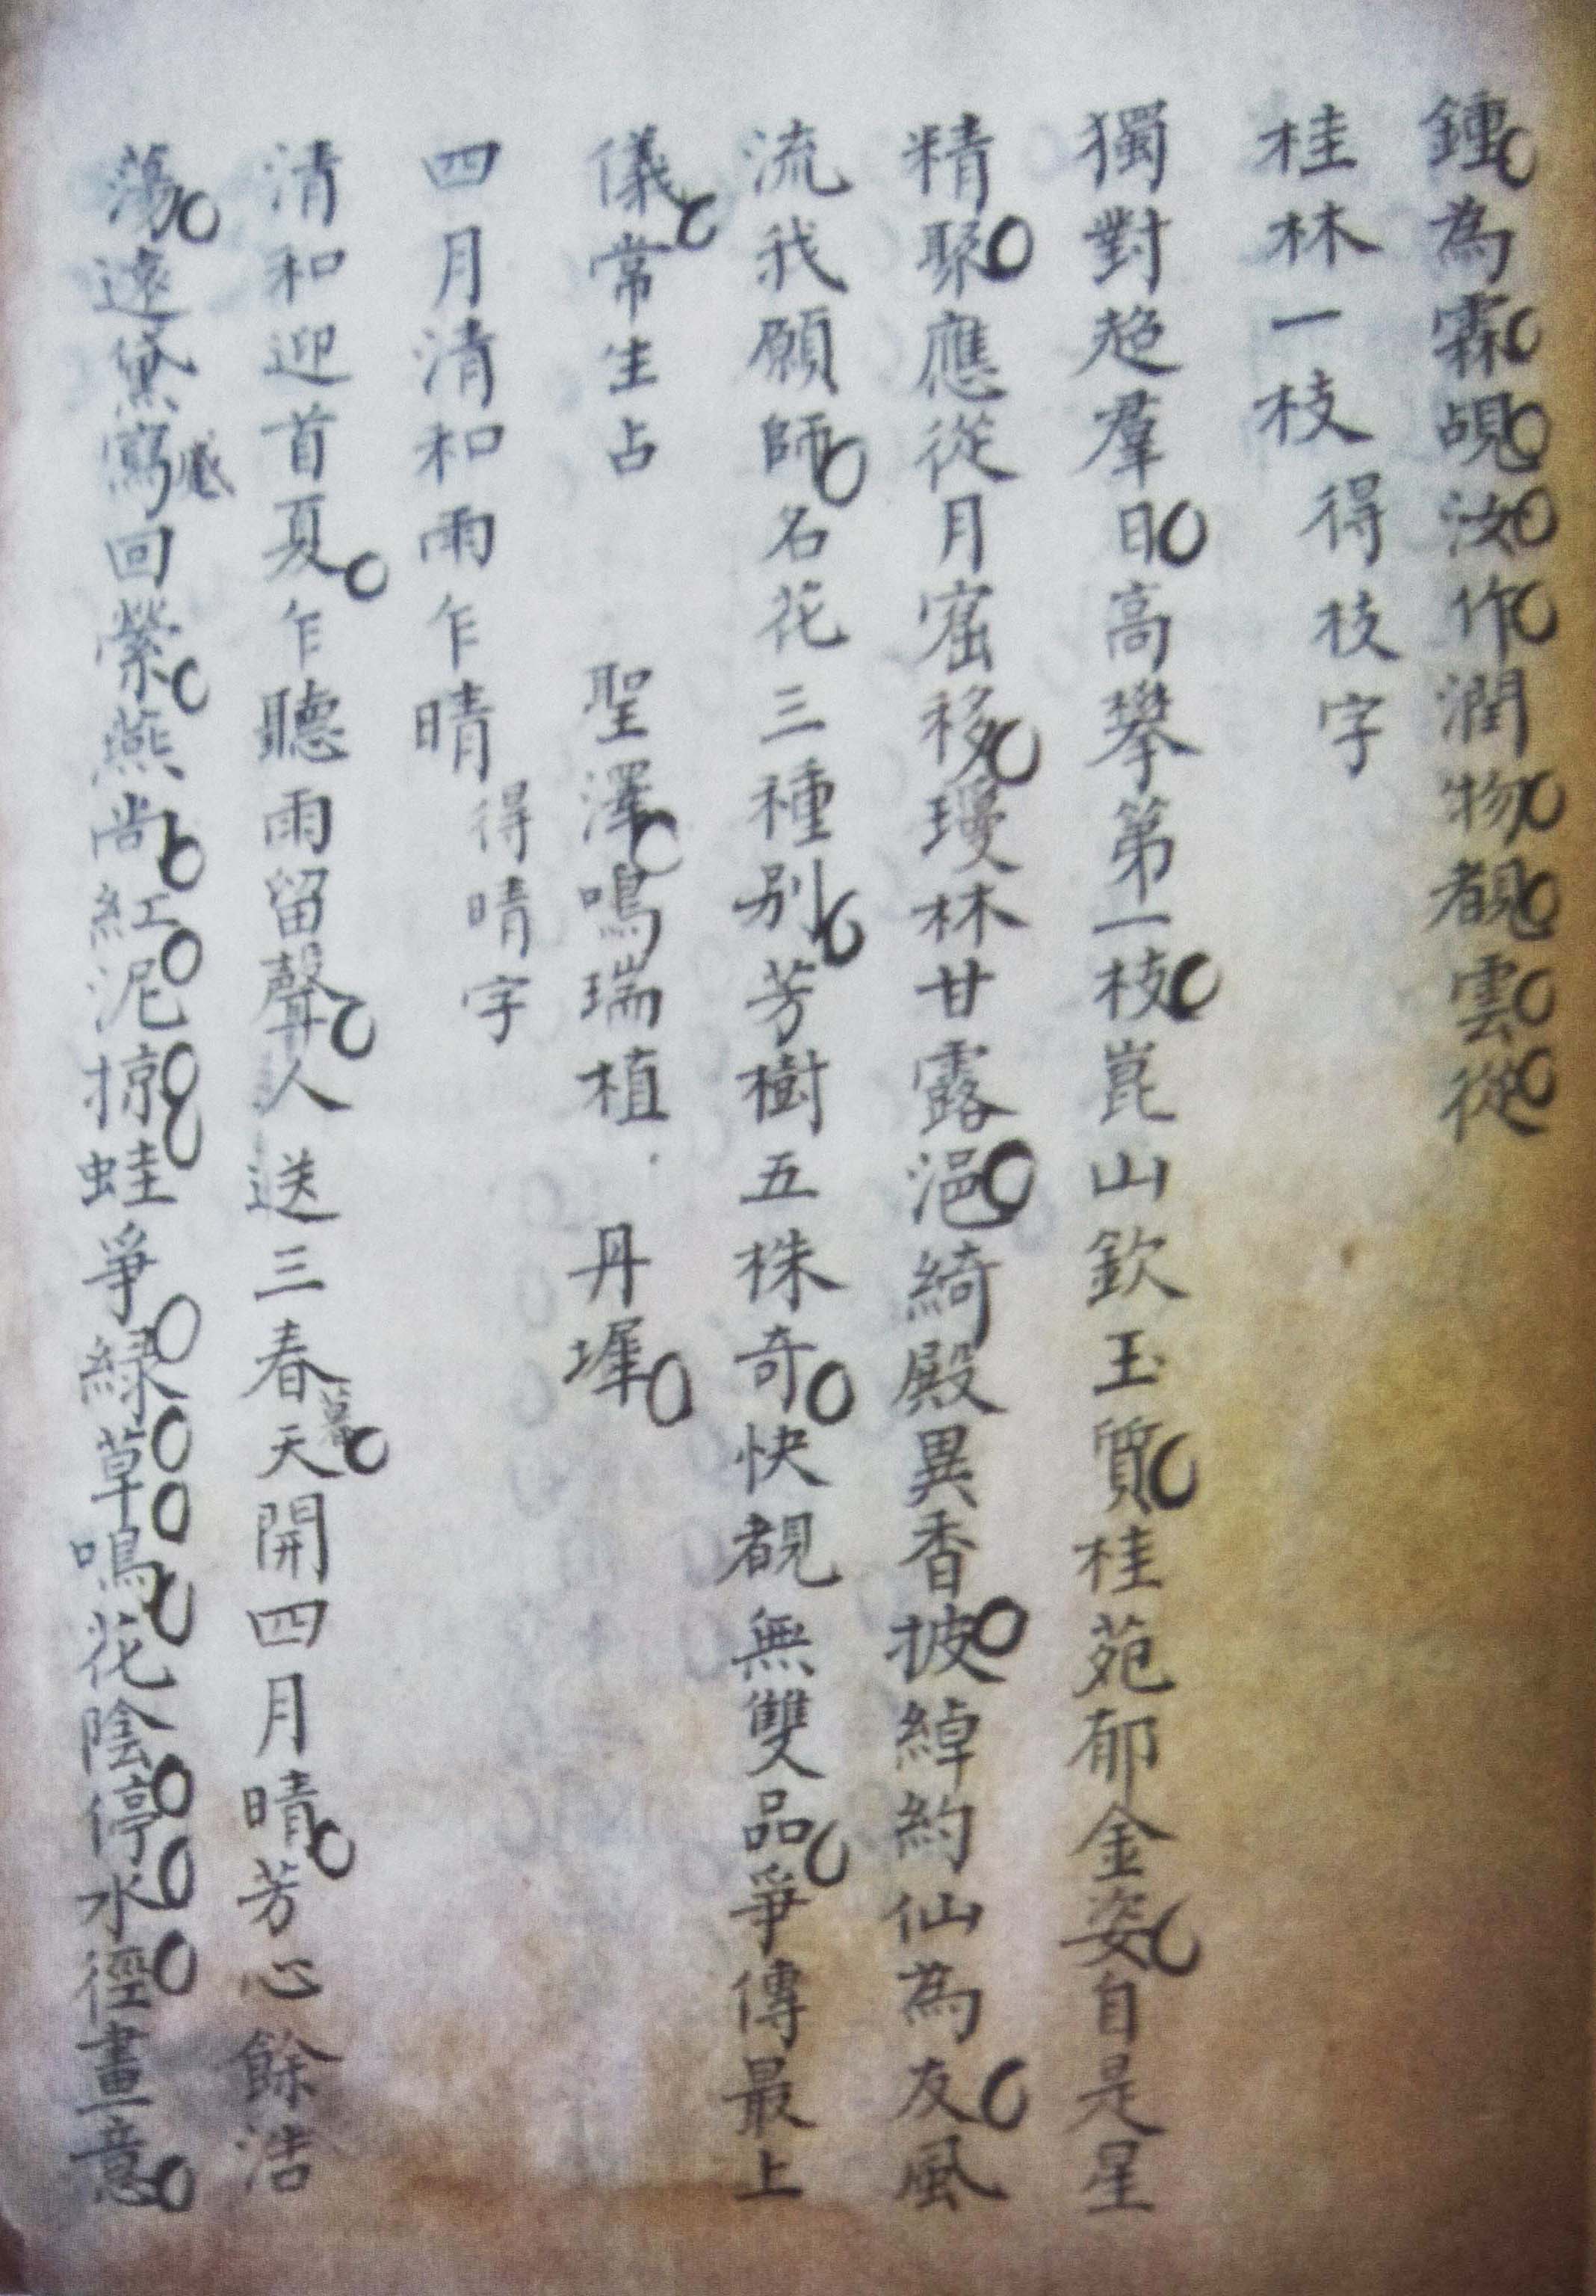 鍾為霖覭汝作潤物覩雲從
桂林一枝 得枝字
獨對超羣日高攀第一枝崑山欽玉質桂苑郁金姿自是星
精聚應從月窟移瓊林甘露浥綺殿異香披綽約仙為友風
流我願師名花三種別芳樹五株奇快覩無雙品爭傳最上
儀常生占 聖澤鳴瑞植 丹墀
四月清和雨乍晴 得晴字
清和迎首夏乍聽雨留聲人送三春天開四月晴芳心餘浩
蕩遠黛寫回縈燕尚紅泥掠蛙爭緑草鳴花陰停水徑畫意